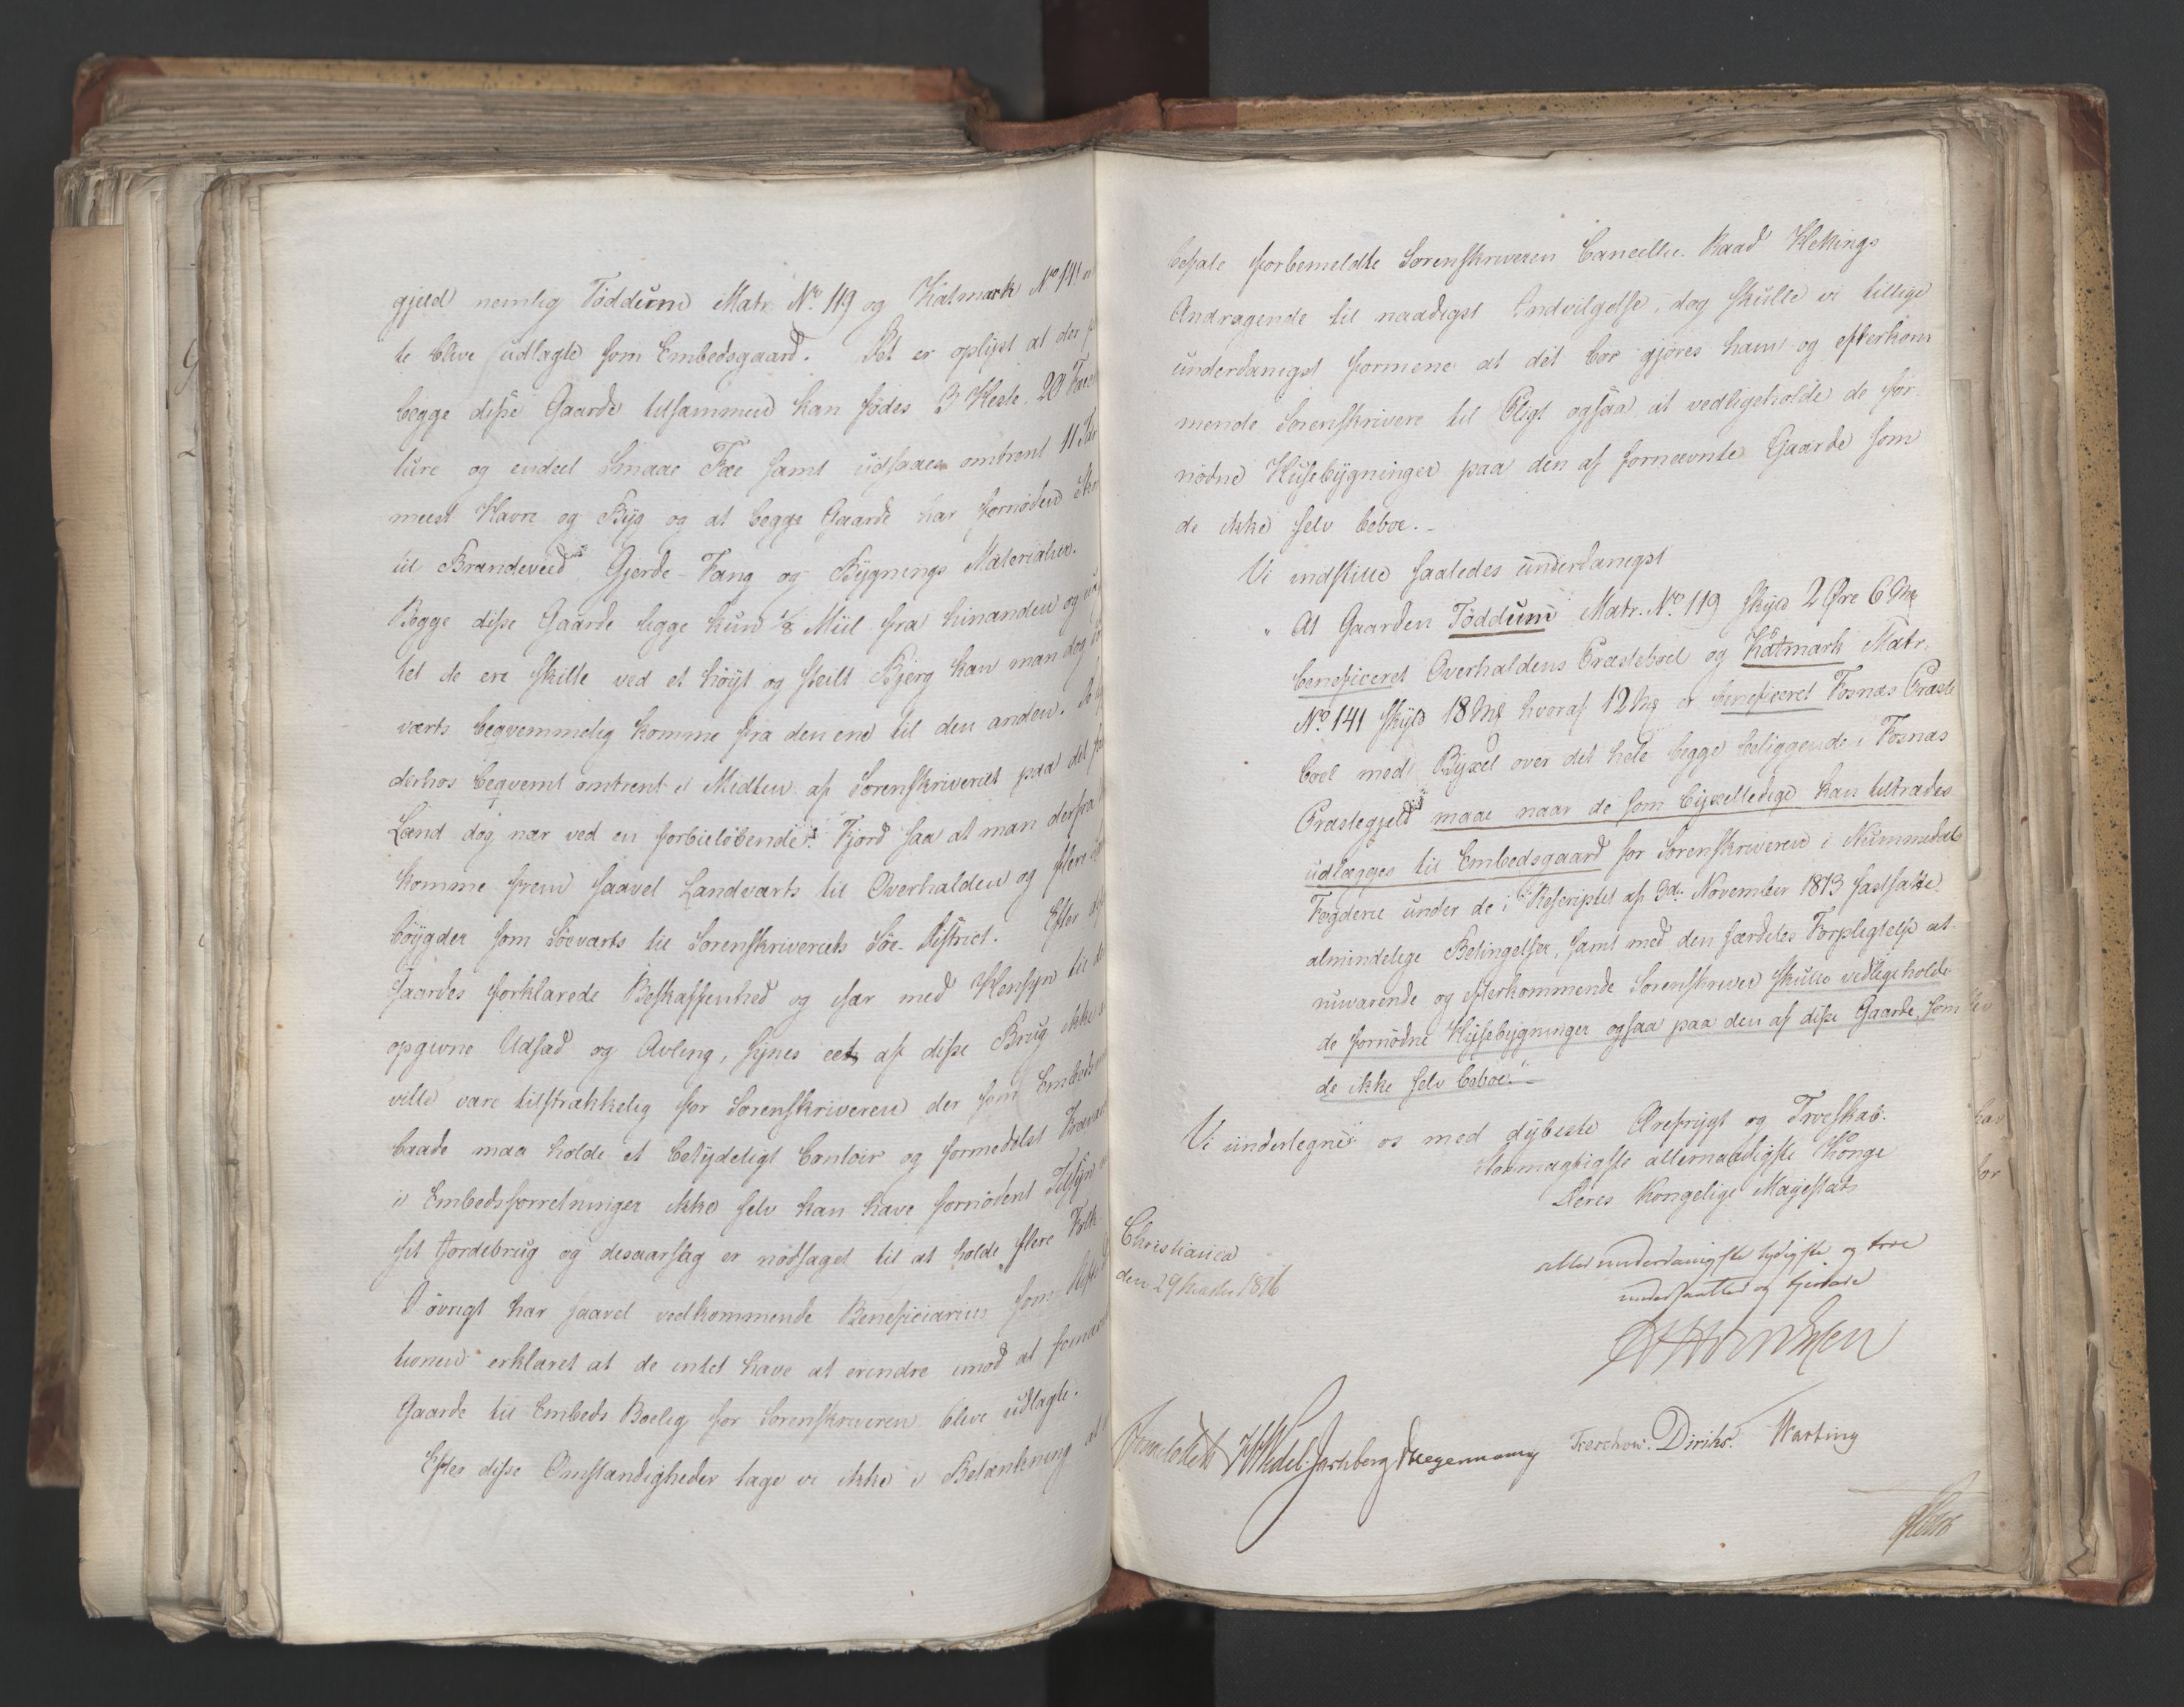 gjeld nemlig Töddum Matr. No 119 og Katmark No 141
te blive udlagte som Embedsgaard. Det er oplyst at der
begge disse Gaarde tilsammen kan födes 3 Heste. 20
ture og endeel Smaae Fæe samt udsaaes omtrent 11
meest Havre og Byg og at begge Gaarde har fornöden
til Brændeved Gjerde-Fang og Bygnings Materialier.
Begge disse Gaarde ligge kun 1/8 Miil fra hinanden og
tet de ere skilte ved et höyt og steilt Bjerg kan man dog
værts beqvemmelig komme fra den ene til den anden.
derhos beqvemt omtrent i Midten af Sorenskriveriet paa det
Land dog nær ved en forbieløbende Fjord saa at man derfra
komme frem saavel Landværts til Overhalden og flere
böygder som Söeværts til Sorenskriveriets Söe-District. Efter
Gaardes forklarede Beskaffenhed og især med Hensyn til
opgivne Udsæd og Avling, synes eet af disse Brug ikke
ville være tilstrækkelig for Sorenskriveren der som
baade maa holde et betydeligt Contoir og formedelst
i Embedsforretninger ikke selv kan have fornödent Tilsyn
sit Jordebrug og desaarsag er nödsaget til at holde flere Folk
I övrigt har saavel vedkommende Beneficiarius som
tionen erklæret at de intet have at erindre imod at
Gaarde til Embeds Boelig for Sorenskriveren blive udlagte.
Efter disse Omstændigheder tage vi ikke i Betænkning
befale forbemeldte Sorenskriveren Cancellie Raad Hekings
Andragende til naadigst Indvilgelse, dog skulle vi tillige
underdanigst formene at det bör gjöres ham og efterkom
mende Sorenskrivere til Pligt ogsaa at vedligeholde de for
nödne Husebygninger paa den af fornævnte Gaarde som
de ikke selv beboe.
Vi indstille saaledes underdanigst
"At Gaarden Töddum Matr. No. 119 skyld 2 Øre 6
beneficeret Overhaldens Præsteboel og Katmark Matr.
No 141 skyld 18 hvoraf 12 er beneficeret Fosnæs Præste
boel med Byxel over det hele begge beliggende i Fosnæs
Præstegjeld maae naar de som byxelledige kan tiltrædes
udlægges til Embedsgaard for Sorenskriveren i Nummedals
Fogderie under de i Rescriptet af 3d. November 1813 fastsatte
almindelige Betingelser, samt med den særdeles Forpligtelse at
nuværende og efterkommende Sorenskriver skulle vedligeholde
de fornödne Husebygninger ogsaa paa den af disse Gaarde, som
de ikke selv beboe."
Vi undertegne os med dybeste Ærefrygt og Troeskab.
Stormægtigste allernaadigste Konge
Deres Kongelige Majestæts
allerunderdanigste lydigste og troe
undersaatter og tjenere
Christiania
den 29 1816
Wedel-Jarlsberg Hegermann Treschow. Diriks.